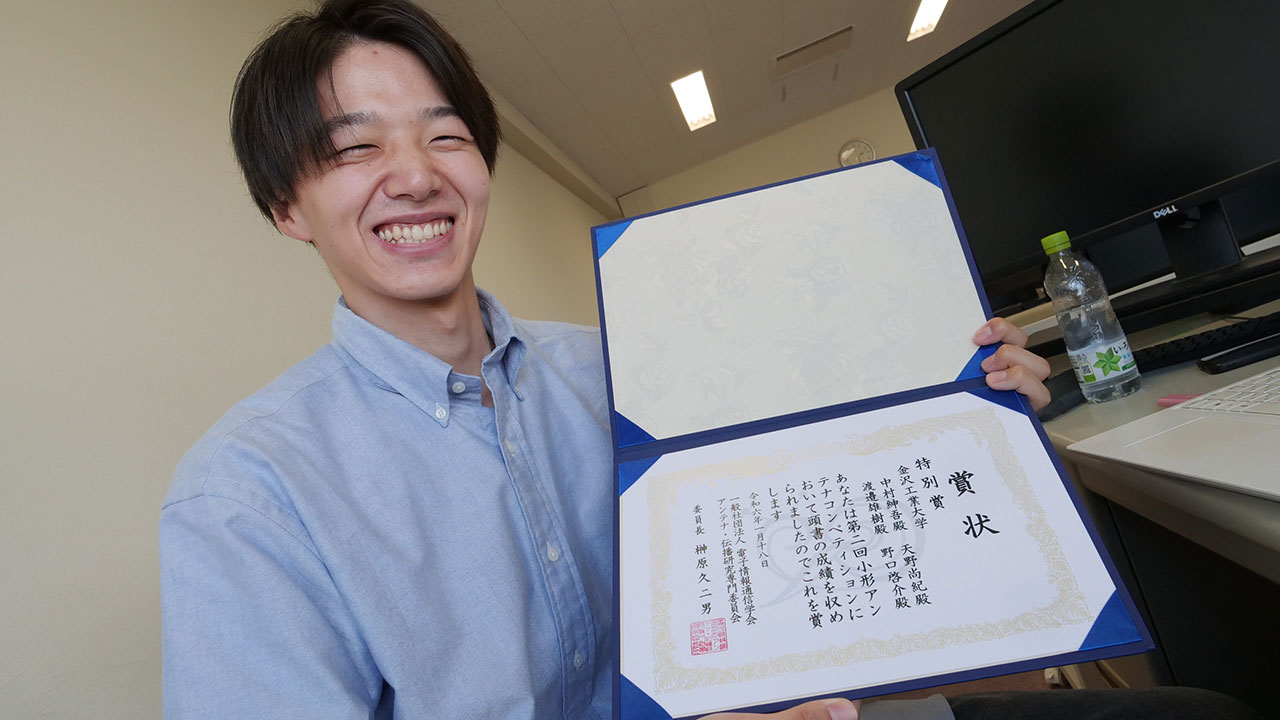 賞状
特別賞
金沢工業大学 天野尚紀殿
中村紳吾殿 野口啓介殿
渡邉雄樹殿
あなたは第二回小形アン
テナコンペティションに
おいて頭書の成績を収め
られましたのでこれを賞
します
令和六年一月十八日
一般社団法人 電子情報通信学会
アンテナ・伝播研究専門委員会
委員長 榊原久二男
DELL
い・ろ